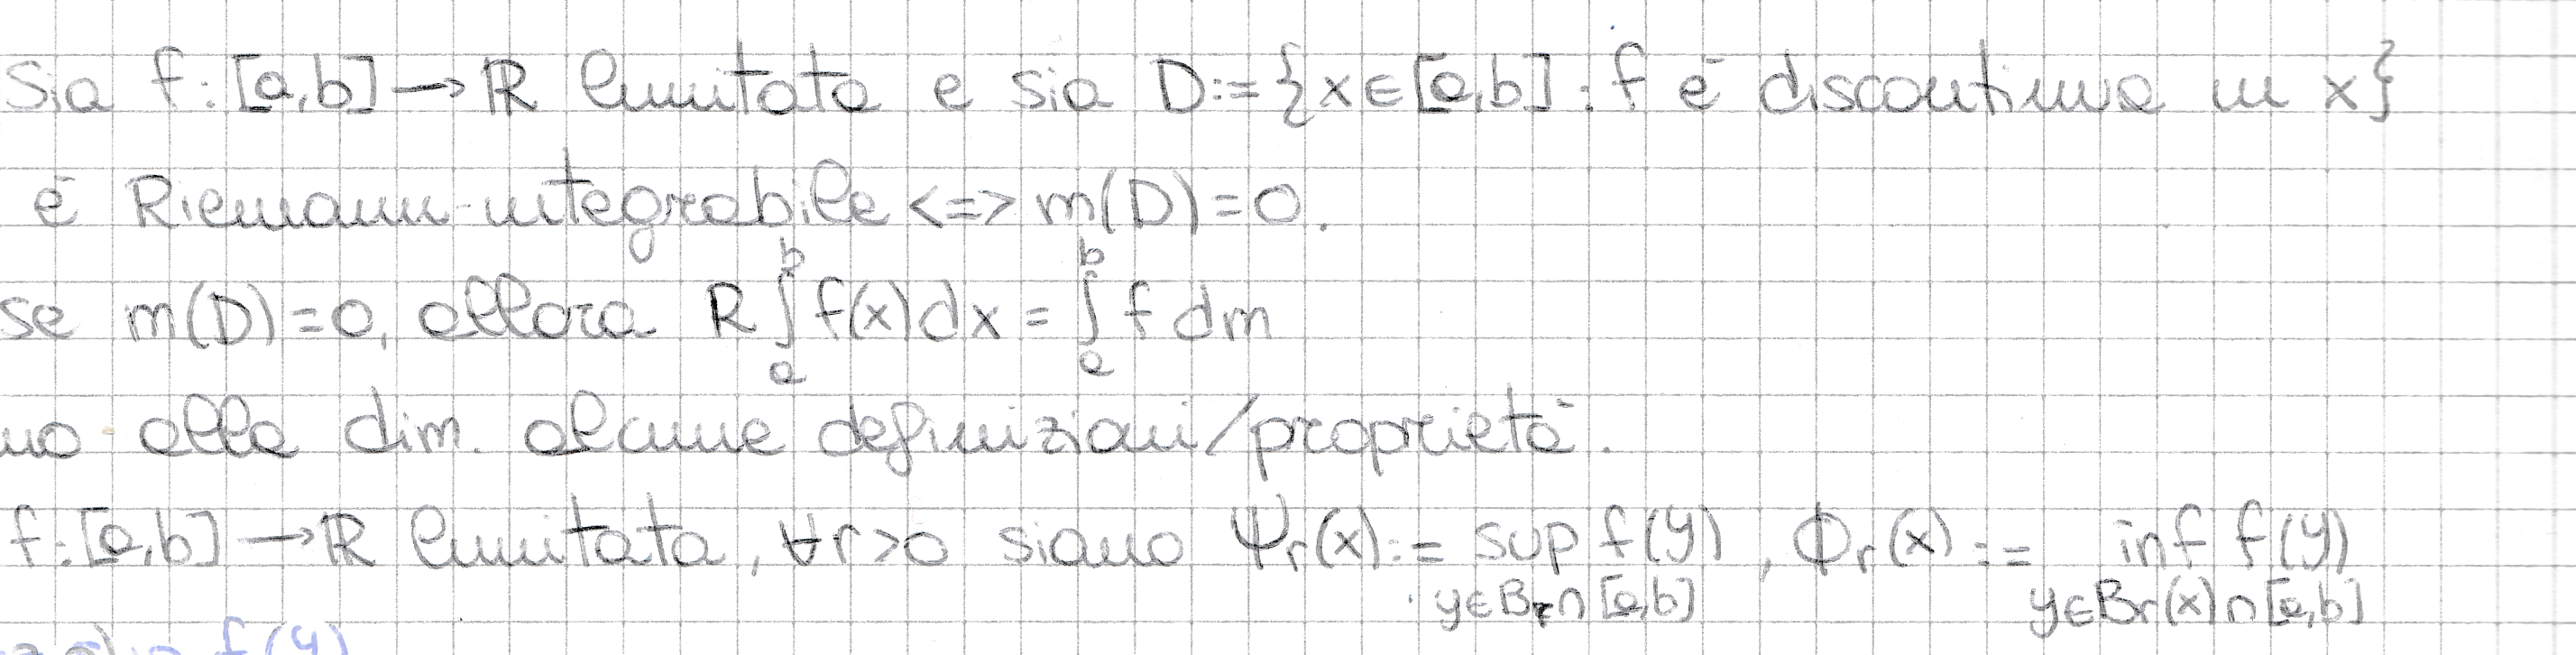 Sia f: [a,b] → ℝ limitata e sia D := {x ∈ [a,b] : f è discontinua in x}
è Riemann-integrabile <=> m(D) = 0.
se m(D) = 0, allora R∫_a^b f(x) dx = ∫_a^b f dm
mo alla dim. alcune definizioni/proprietà.
f: [a,b] → ℝ limitata, ∀r>0 siano Ψ_r(x) := sup_{y∈B_r∩[a,b]} f(y), Φ_r(x) := inf_{y∈B_r(x)∩[a,b]} f(y)
f(y)